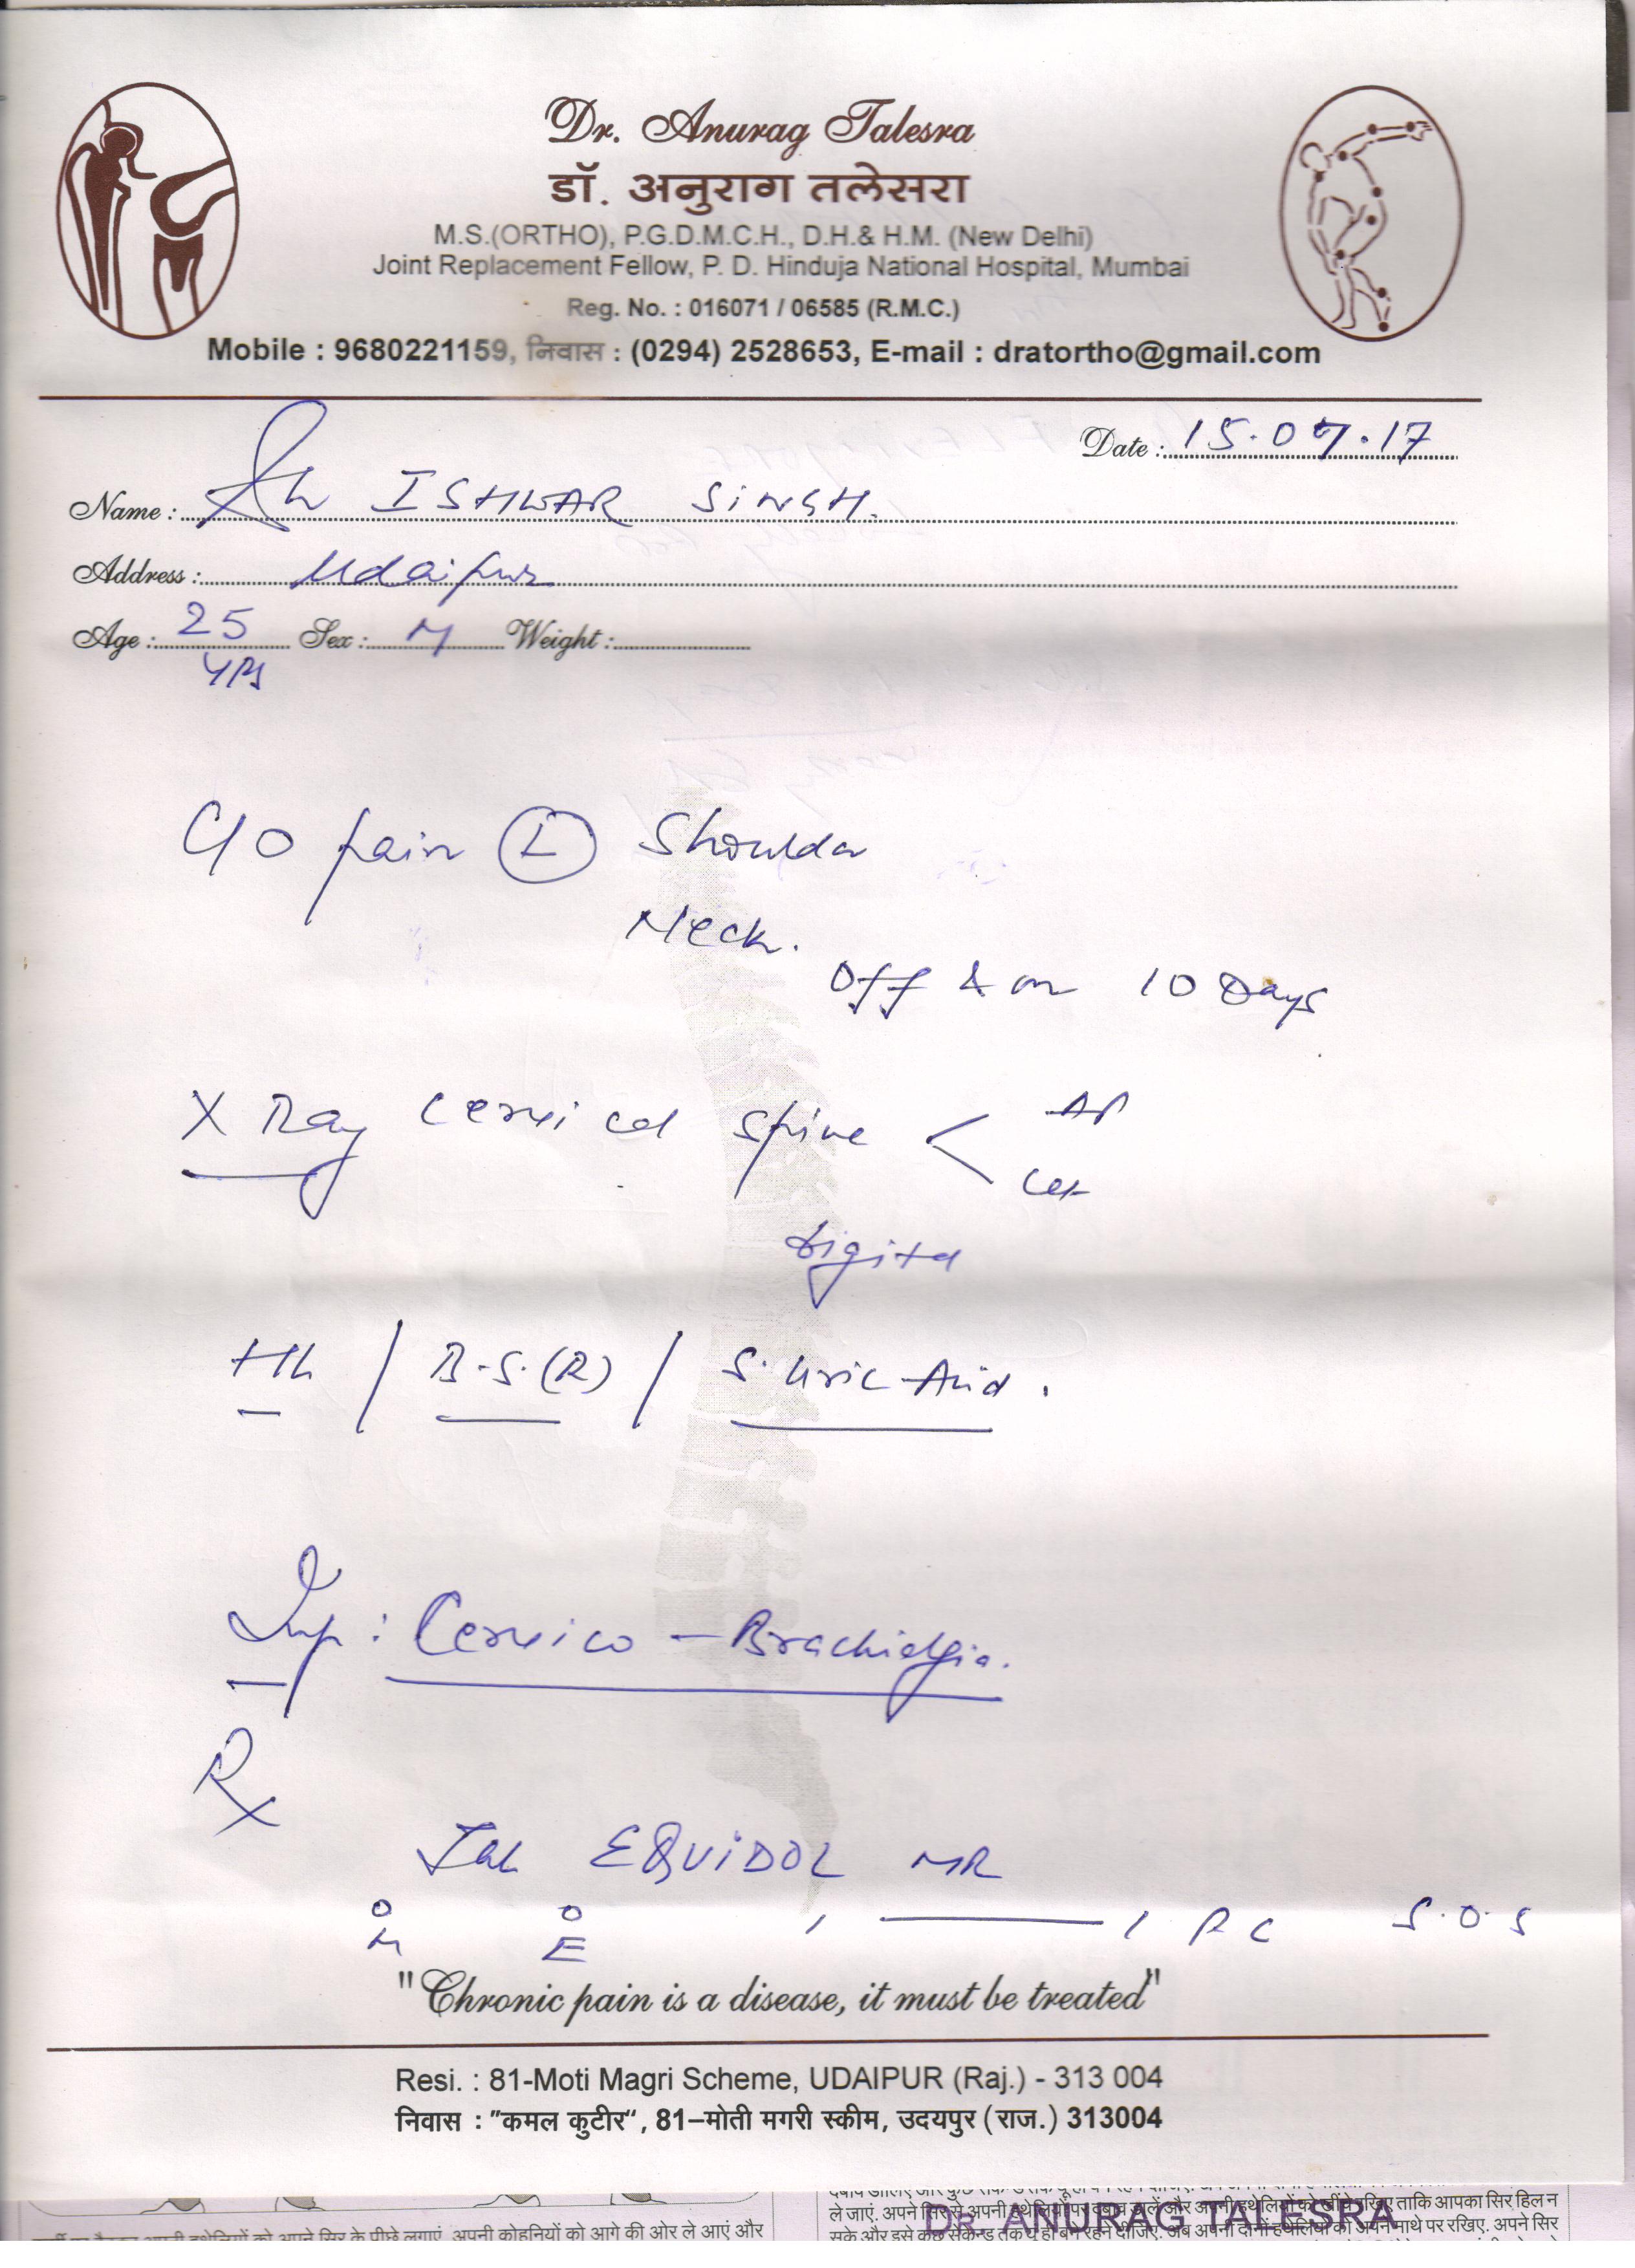 Dr. Anurag Talesra
डॉ. अनुराग तलेसरा
M.S.(ORTHO), P.G.D.M.C.H., D.H.& H.M. (New Delhi)
Joint Replacement Fellow, P. D. Hinduja National Hospital, Mumbai
Reg. No. : 016071 / 06585 (R.M.C.)
Mobile : 9680221159, निवास : (0294) 2528653, E-mail : dratortho@gmail.com
Date : 15.07.17
Name : Sh ISHWAR SINGH.
Address : Udaipur
Age : 25 Sex : M Weight :
yrs
C/O pain L Shoulder
Neck.
Off & on 10 Days
X Ray Cervical Spine < AP
Lat
Digital
Hb / B.S.(R) / S. Uric Acid.
Imp : Cervico - Brachialgia.
Rx
Tab EQUIDOL MR
1 — 1 PC S.O.S
M E
"Chronic pain is a disease, it must be treated"
Resi. : 81-Moti Magri Scheme, UDAIPUR (Raj.) - 313 004
निवास : "कमल कुटीर", 81–मोती मगरी स्कीम, उदयपुर (राज.) 313004
ले जाएं. अपने सिर से अपनी हथेलियों पर दबाव डालें और अपनी हथेलियों को रखिए ताकि आपका सिर हिल न
DR. ANURAG TALESRA
अपनी हथेलियों को अपने सिर के पीछे लगाएं. अपनी कोहनियों को आगे की ओर ले आएं और
सके और इसे कुछ सेकेन्ड तक यूं ही बने रहने दीजिए. अब अपनी दोनों हथेलियों को अपने माथे पर रखिए. अपने सिर